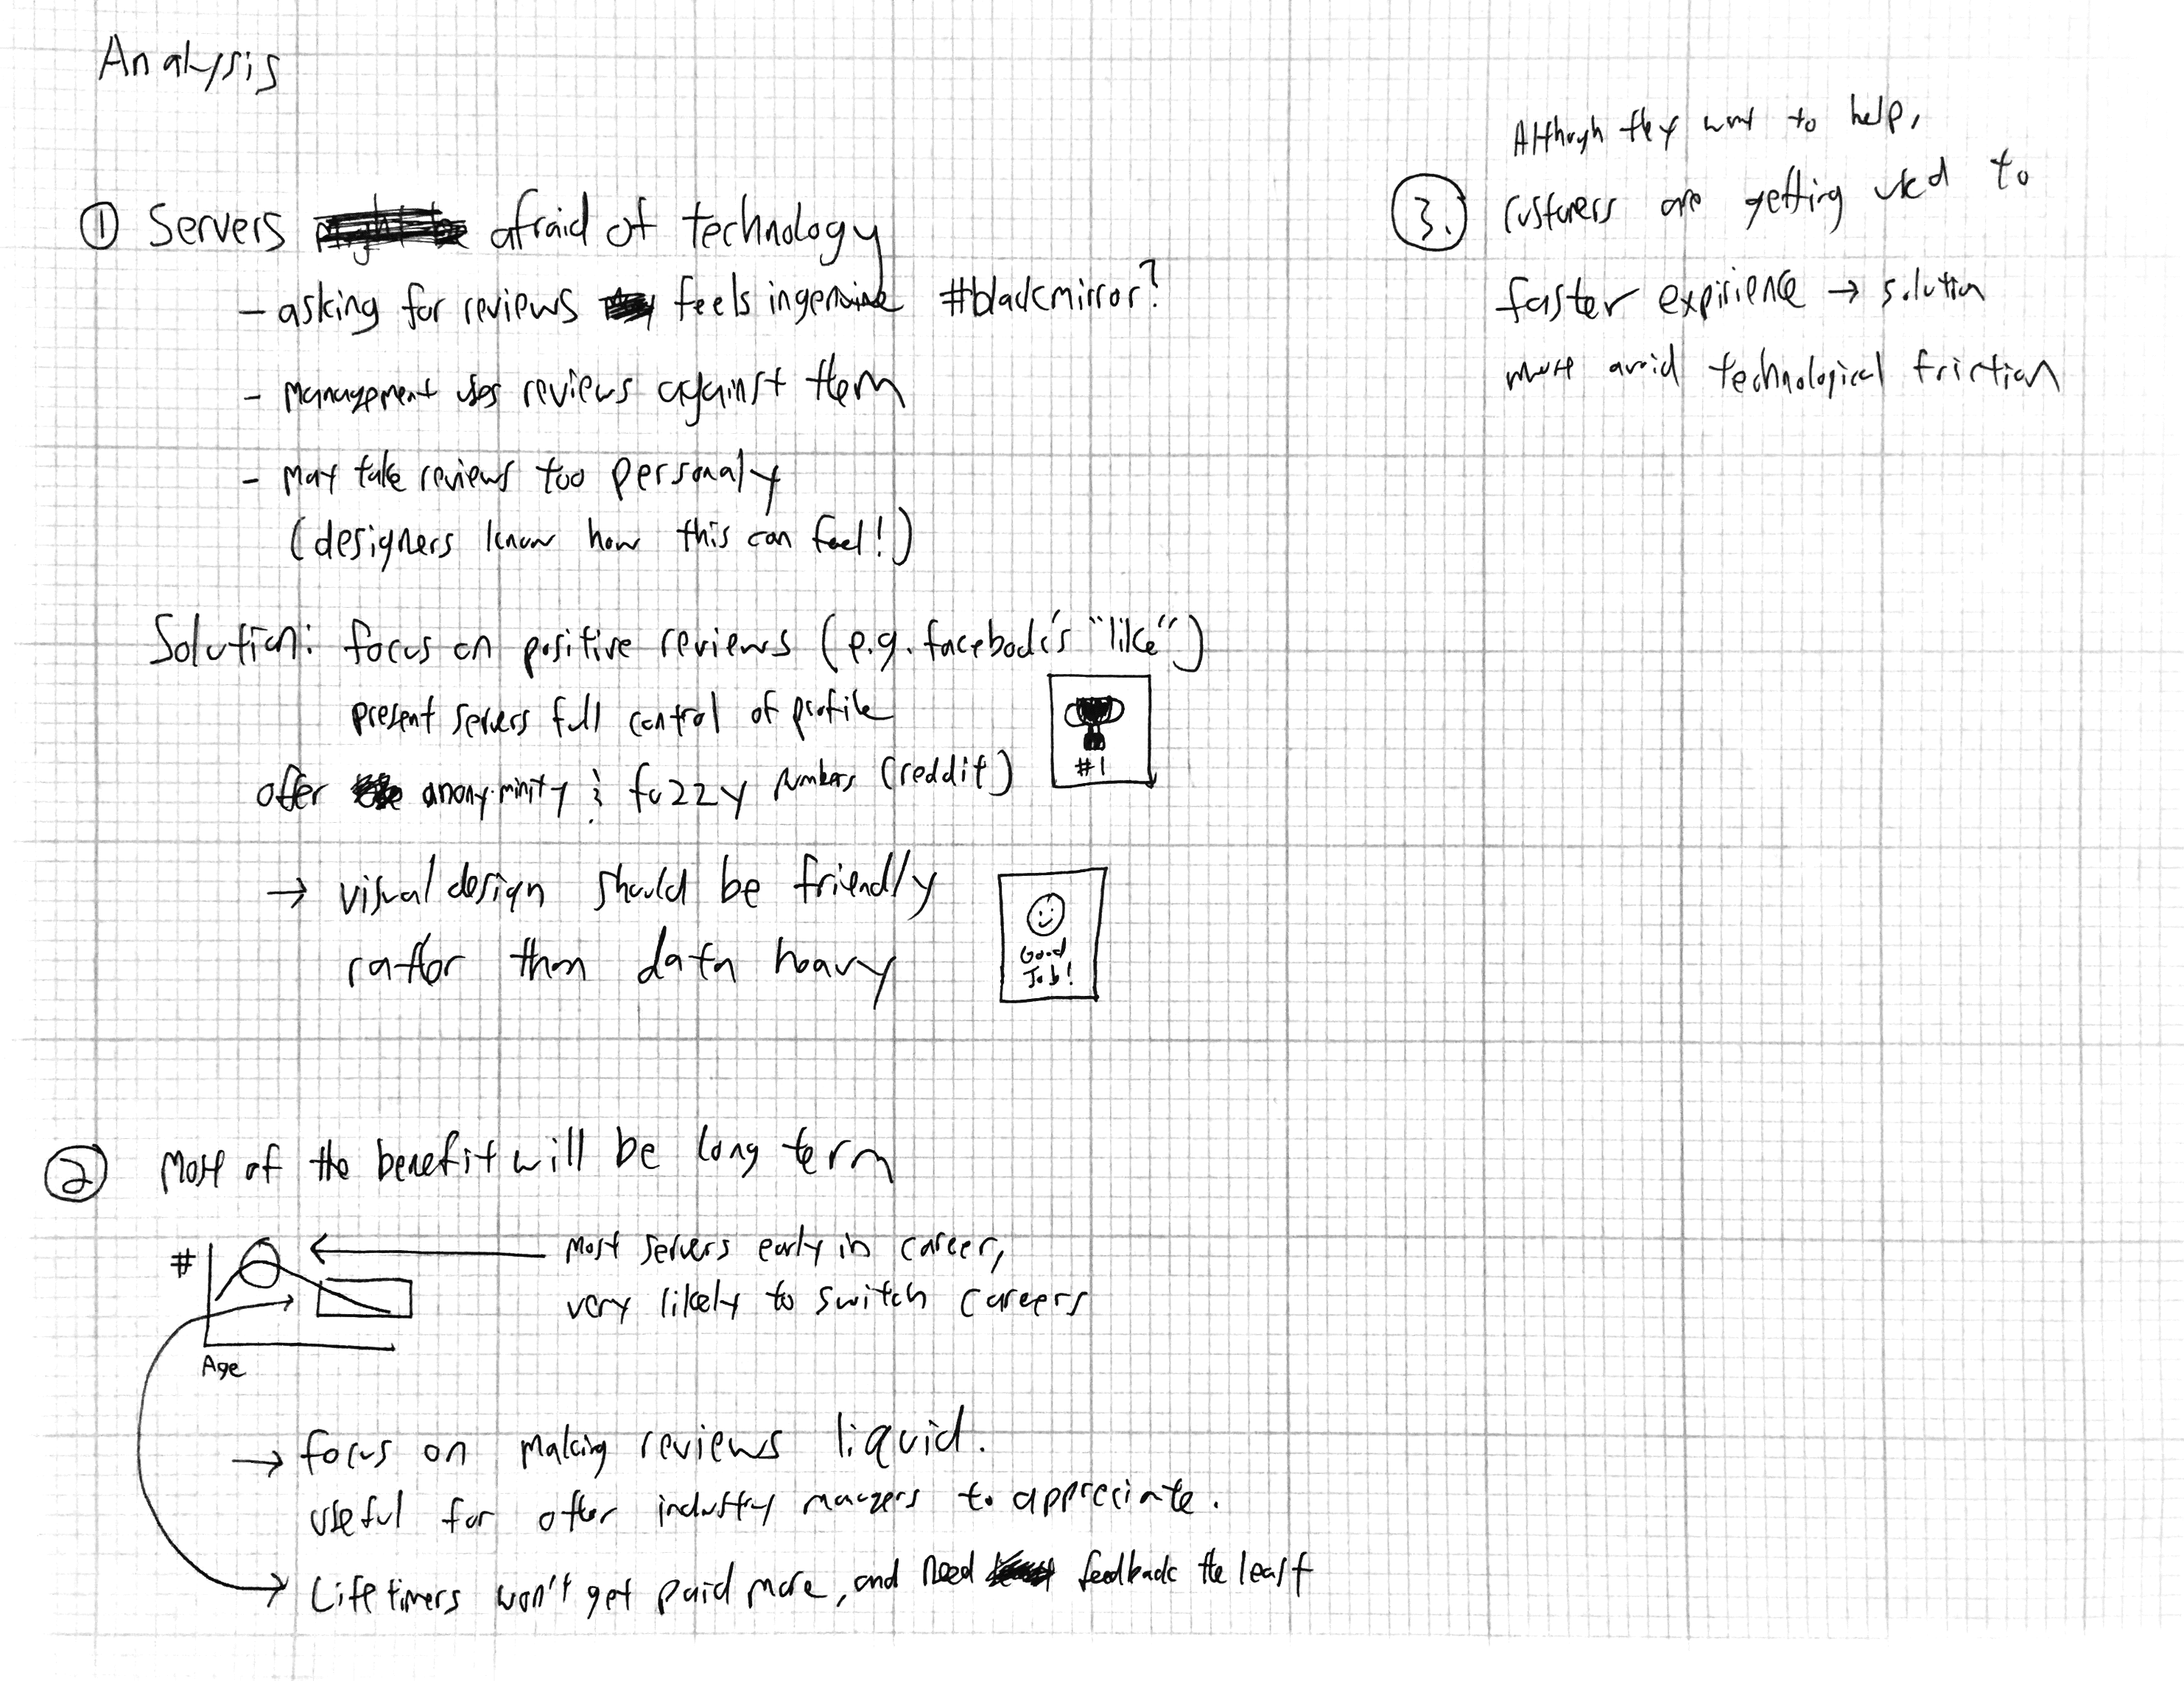 Analysis
① Servers might be afraid of technology
- asking for reviews feels ingenuine #blackmirror?
- Management uses reviews against them
- May take reviews too personaly
(designers know how this can feel!)
Solution: focus on positive reviews (e.g. facebook's "like")
present servers full control of profile
#1
offer anonyminity & fuzzy numbers (reddit)
→ visual design should be friendly
rather than data heavy
Good
Job!
② Most of the benefit will be long term
#
Age
most servers early in career,
very likely to switch careers
→ focus on making reviews liquid.
useful for other industry managers to appreciate.
→ Life timers won't get paid more, and need feedback the least
Although they want to help,
③. customers are getting used to
faster expirience → solution
must avoid technological friction